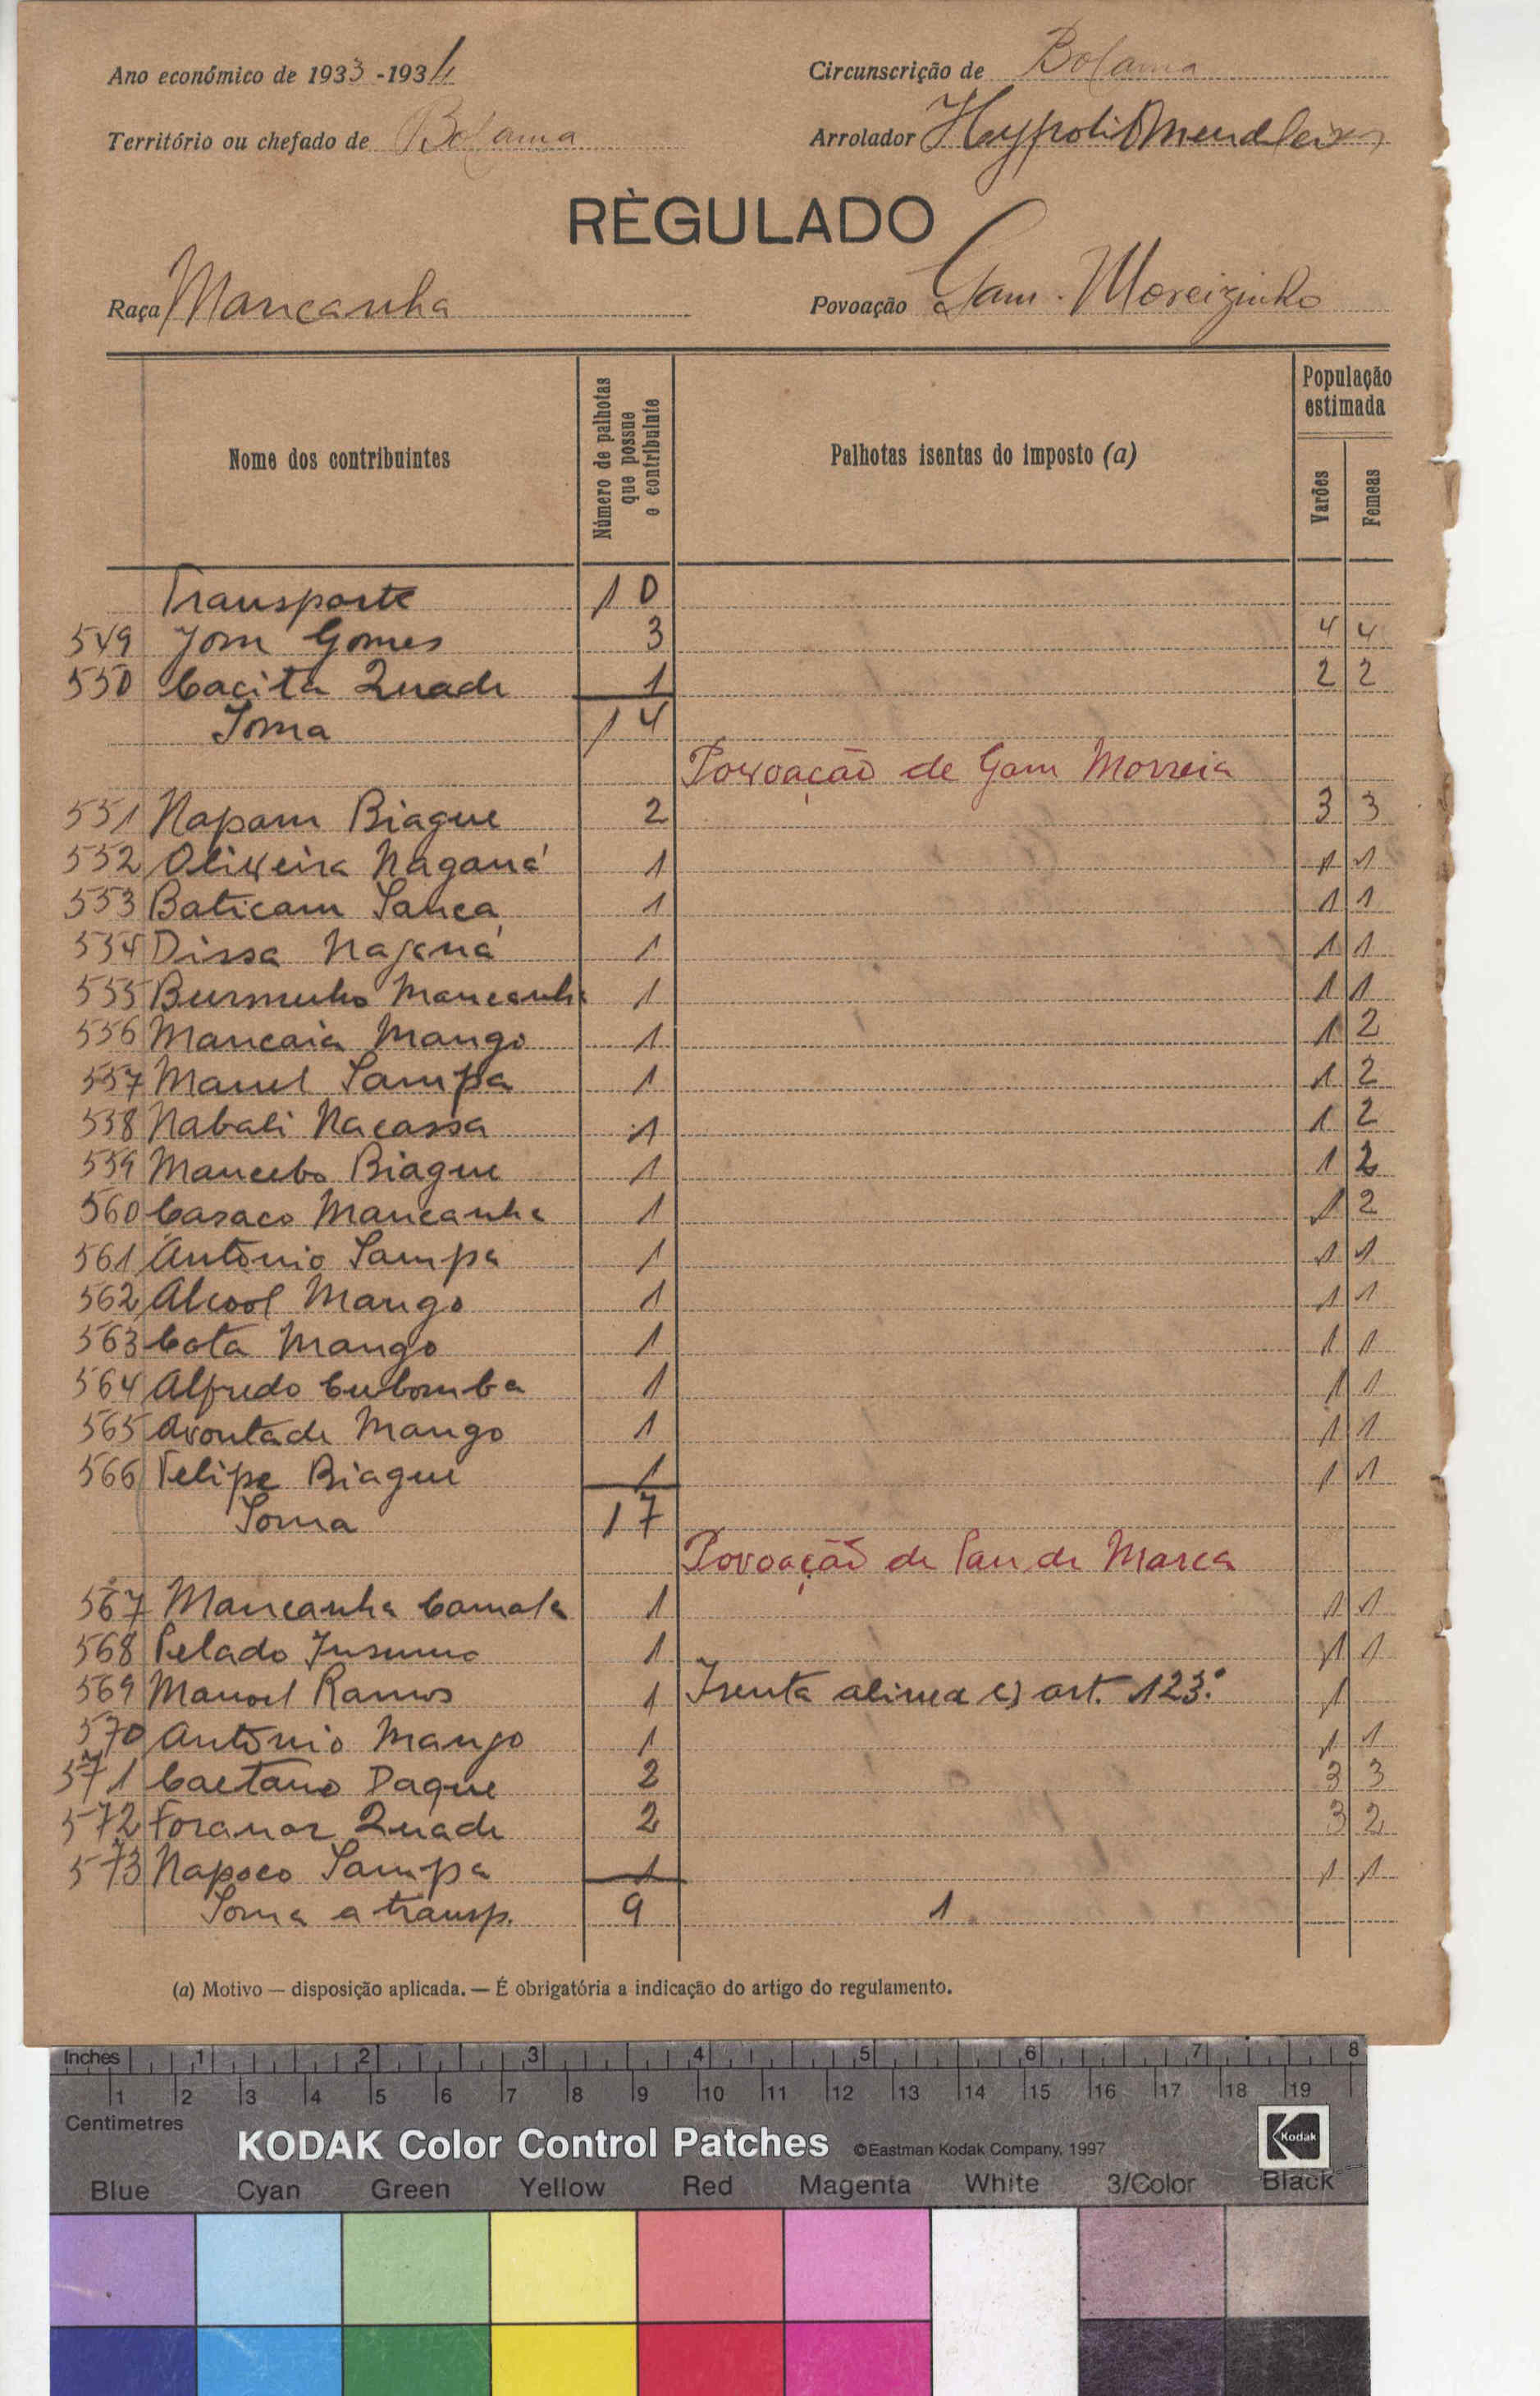 Ano económico de 1933-1934
Circunscrição de Bolama
Território ou chefado de Bolama
Arrolador
RÈGULADO
Raça Mancanha
Povoação Gam-Moreizinho
Nome dos contribuintes
Número de palhotas que possue o contribuinte
Palhotas isentas do imposto (a)
População estimada
Varões
Femeas
Transporte 10
549 Jom Gomes 3 4 4
550 Cacita Quade 1 2 2
Soma 14
Povoação de Gam Morreia
551 Napam Biague 2 3 3
552 Oliveira Naganá 1 1 1
553 Baticam Sanca 1 1 1
554 Dissa Naganá 1 1 1
555 Mancanha 1 1 1
556 Mancaia Mango 1 1 2
557 Manel Sampa 1 1 2
558 Nabali Nacassa 1 1 2
559 Mancebo Biague 1 1 2
560 Casaco Mancanha 1 1 2
561 António Sampa 1 1 1
562 Alcool Mango 1 1 1
563 Cota Mango 1 1 1
564 Alfredo Cubomba 1 1 1
565 Avontade Mango 1 1 1
566 Felipe Biague 1 1 1
Soma 17
Povoação de Pau de Marca
567 Mancanha Camala 1 1 1
568 Pelado 1 1 1
569 Manoel Ramos 1 Isenta alinea c) art. 123.º 1
570 António Mango 1 1 1
571 Caetano Daque 2 3 3
572 Foranor Quade 2 3 2
573 Napoco Sampa 1 1 1
Soma a transp. 9 1
(a) Motivo — disposição aplicada. — É obrigatória a indicação do artigo do regulamento.
Inches 1 2 3 4 5 6 7 8
1 2 3 4 5 6 7 8 9 10 11 12 13 14 15 16 17 18 19
Centimetres
KODAK Color Control Patches ©Eastman Kodak Company, 1997 Kodak
Blue Cyan Green Yellow Red Magenta White 3/Color Black